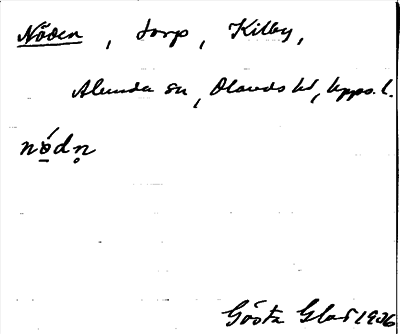 Nöden, torp, Kilby,
Alunda sn, Olands hd, Upps. l.
nǿ̲dn̥
Gösta Glad 1906